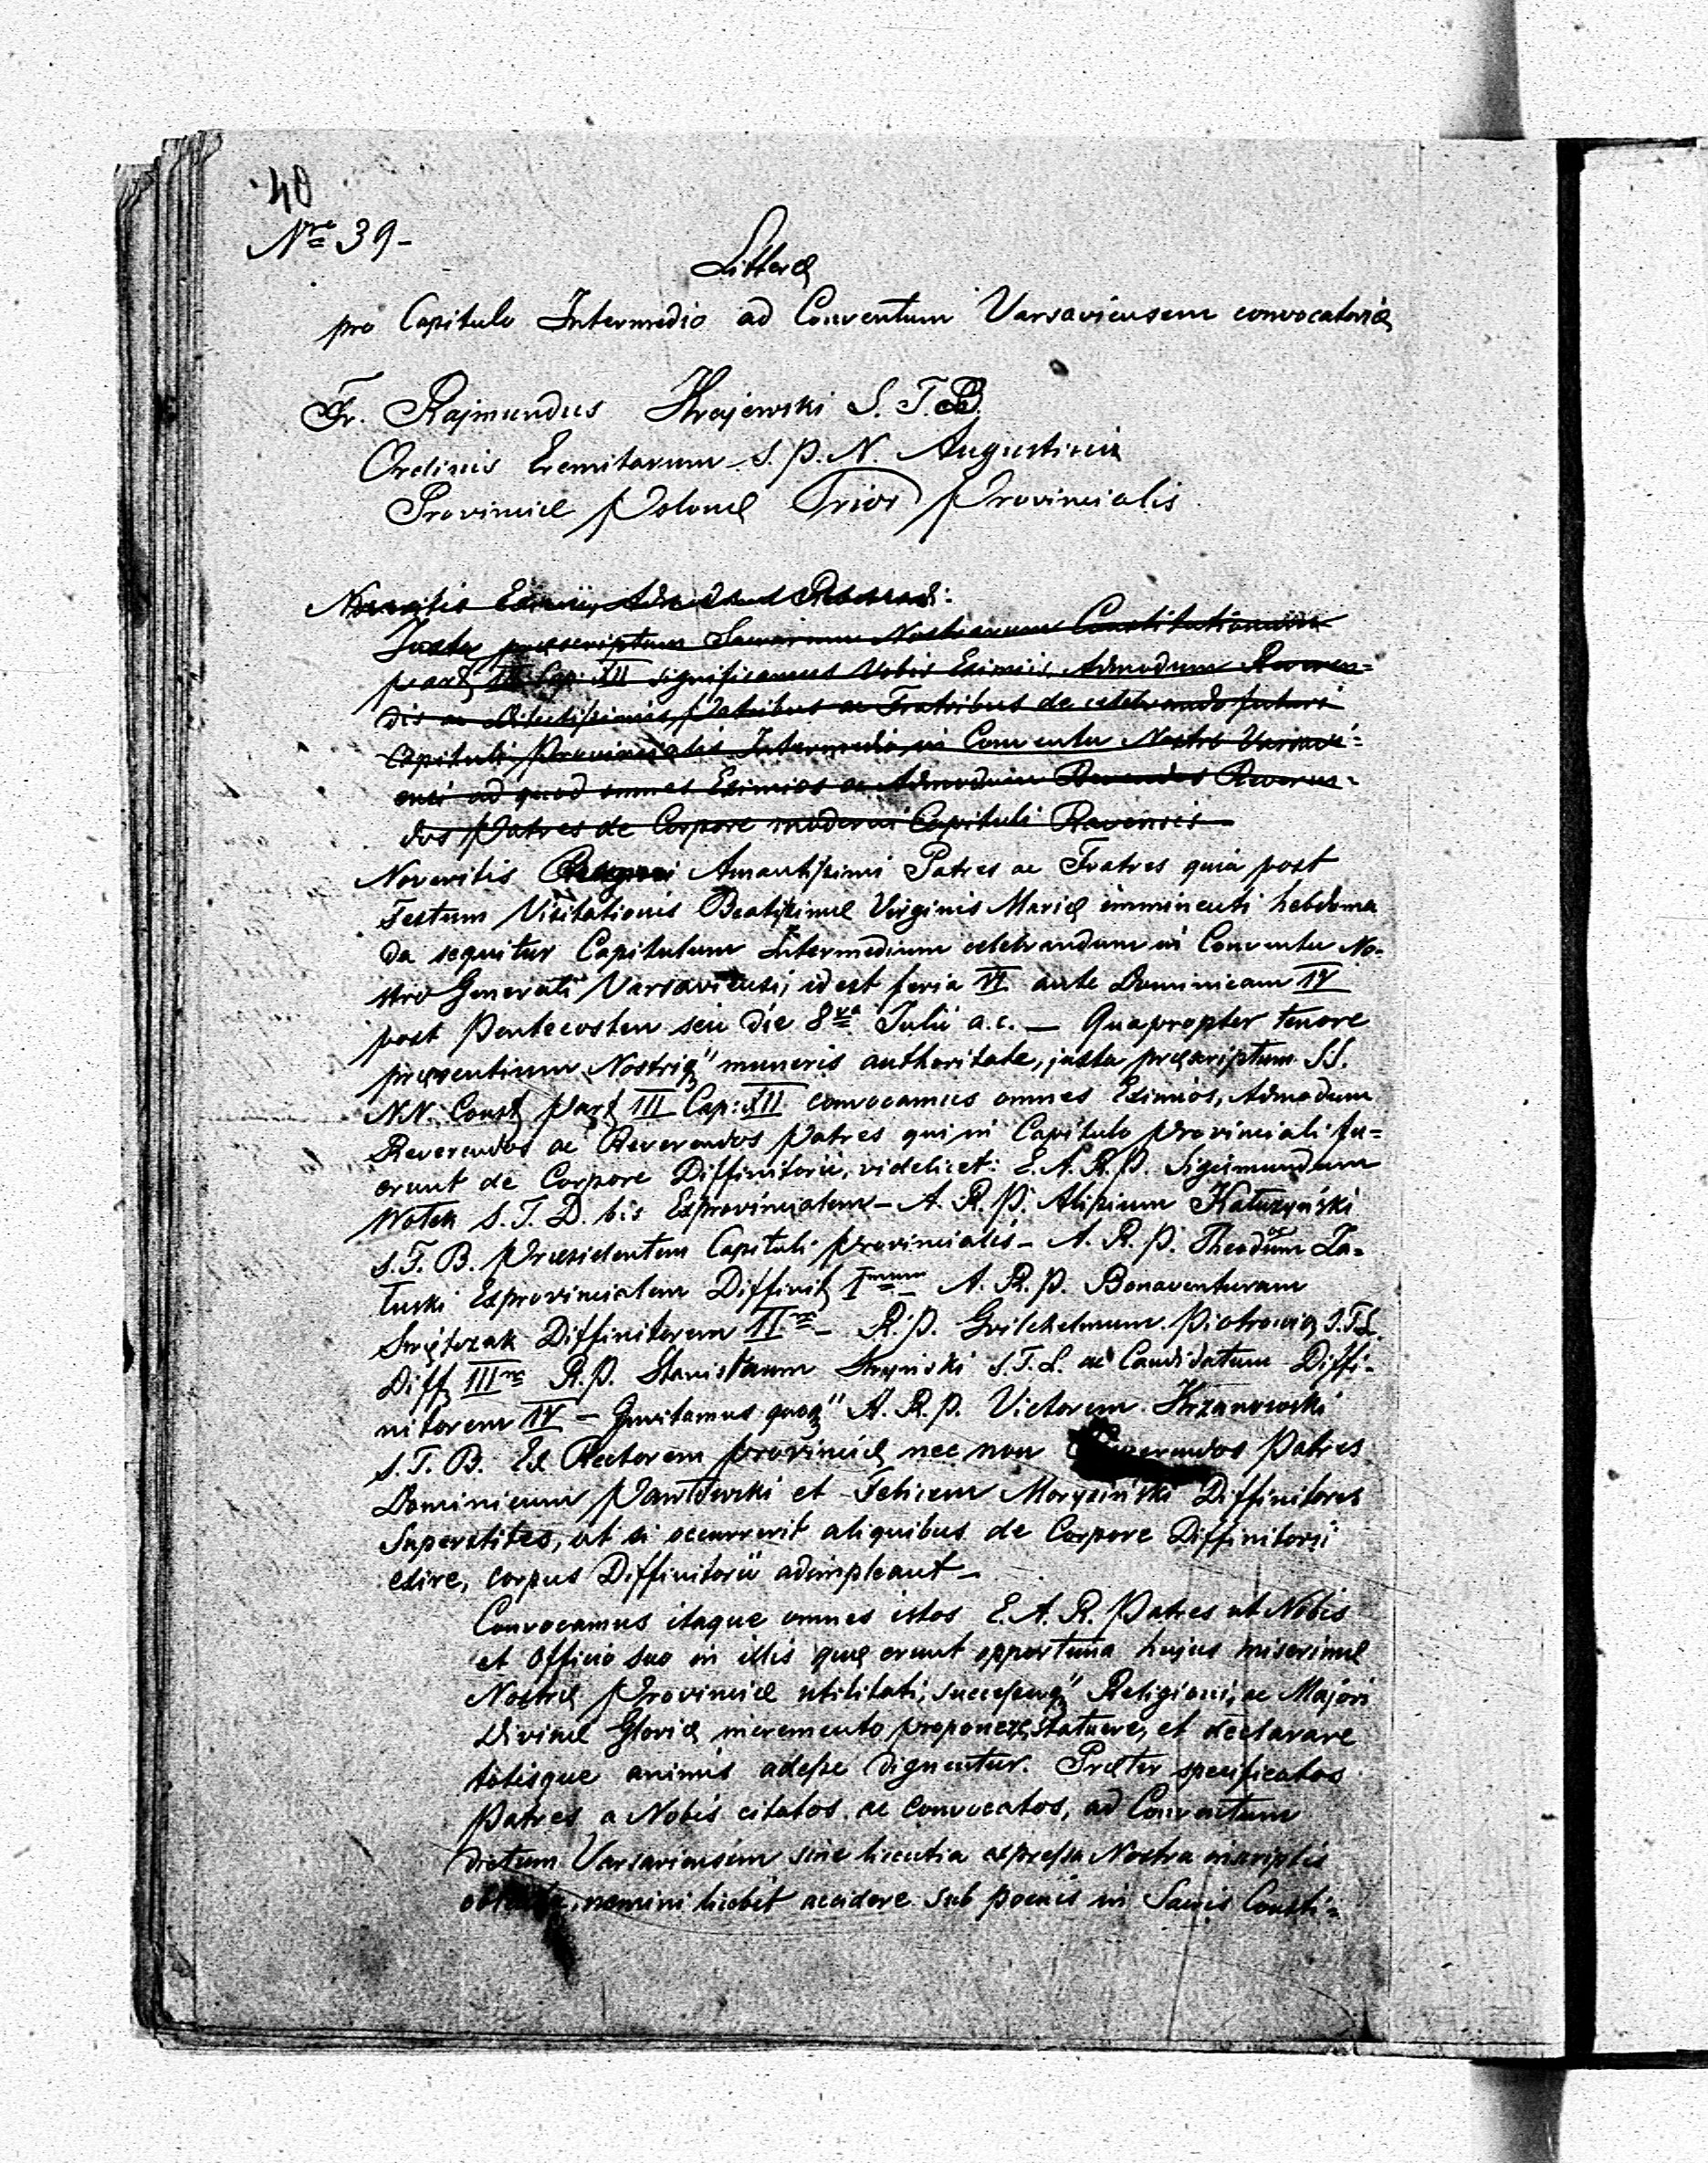 40
Nro 39-
Litteræ
pro Capitulo Intermedio ad Conventum Varsaviensem convocatoriæ
Fr. Rajmundus Krajewski S. T. B.
Ordinis Eremitarum S. P. N. Augustini
Provinciæ Polonæ Prior Provincialis
Noveritis Eximii, Adm
Juxta præscriptum Sacrarum Nostrarum Constitutionum
part III Cap: XII significamus Vobis Eximiis, Admodum Reveren=
dis ac Dilectissimis Patribus ac Fratribus de celebrando futuri
Capituli Provincialis Intermedii in Conventu Nostro Varsavi=
ensi ad quod omnes Eximios ac Admodum Reverendos Reveren=
dos Patres de Corpore moderni Capituli Ravensis
Noveritis Amantissimi Patres ac Fratres quia post
Festum Visitationis Beatissimæ Virginis Mariæ imminenti hebdoma
da sequitur Capitulum Intermedium celebrandum in Conventu No=
stro Generali Varsaviensi, id est feria VI ante Dominicam IV
post Pentecosten seu die 8va Julii a.c. — Quapropter tenore
præsentium Nostriq" muneris authoritate, juxta præscriptum SS.
NN. Const Part III Cap: XII convocamus omnes Eximios, Admodum
Reverendos ac Reverendos Patres qui in Capitulo Provinciali fu=
erunt de Corpore Diffinitorii, videlicet: E. A. R. P. Sigismundum
Wołek S. T. D. bis Exprovincialem — A. R. P. Alipium Kałuzyński
S. T. B. Præsidentem Capituli Provincialis — A. R. P. Theodorum Za=
łuski Exprovincialem Diffinit Imum — A. R. P. Bonaventuram
Swiętrzak Diffinitorem IIm — R. P. Guilchelmum Piotrowicz S.T.L.
Diff IIIm R. P. Stanisłaum S. T. L. ac Candidatum Diffi=
nitorem IV — Invitamus quoq" A. R. P. Victorem Krzanowski
S. T. B. Ex Rectorem Provinciæ nec non Reverendos Patres
Dominicum Pawłowski et Felicem Moryciński Diffinitores
Superstites, ut si occurrerit aliquibus de Corpore Diffinitorii
exire, corpus Diffinitorii adimpleant —
Convocamus itaque omnes istos E. A. R. Patres ut Nobis
et Officio suo in illis quæ erunt opportuna hujus miserimæ
Nostræ Provinciæ utilitati, successuiq" Religioni, ac Majori
Divinæ Gloriæ incremento proponere, statuere, et declarare
totisque animis adesse dignentur. Præter specificatos
Patres a Nobis citatos ac convocatos, ad Conventum
dictum Varsaviensem sine licentia expressa Nostra inscriptis
obtenta, nemini licebit accedere sub poenis in Sacris Consti=